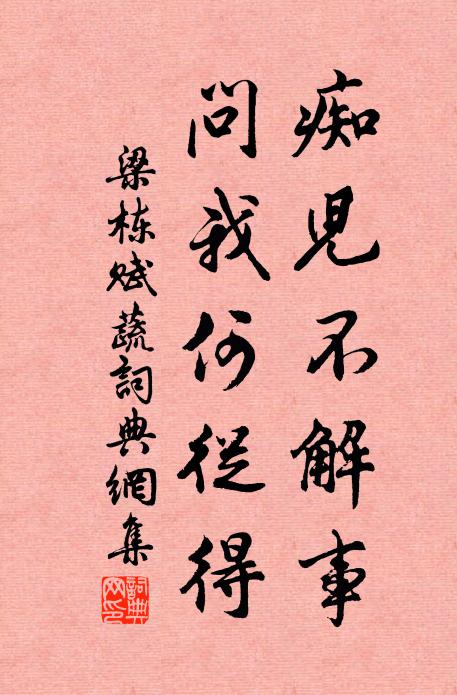 痴兒不解事
問我何從得
梁栋赋蔬詞典網集
詞典網印